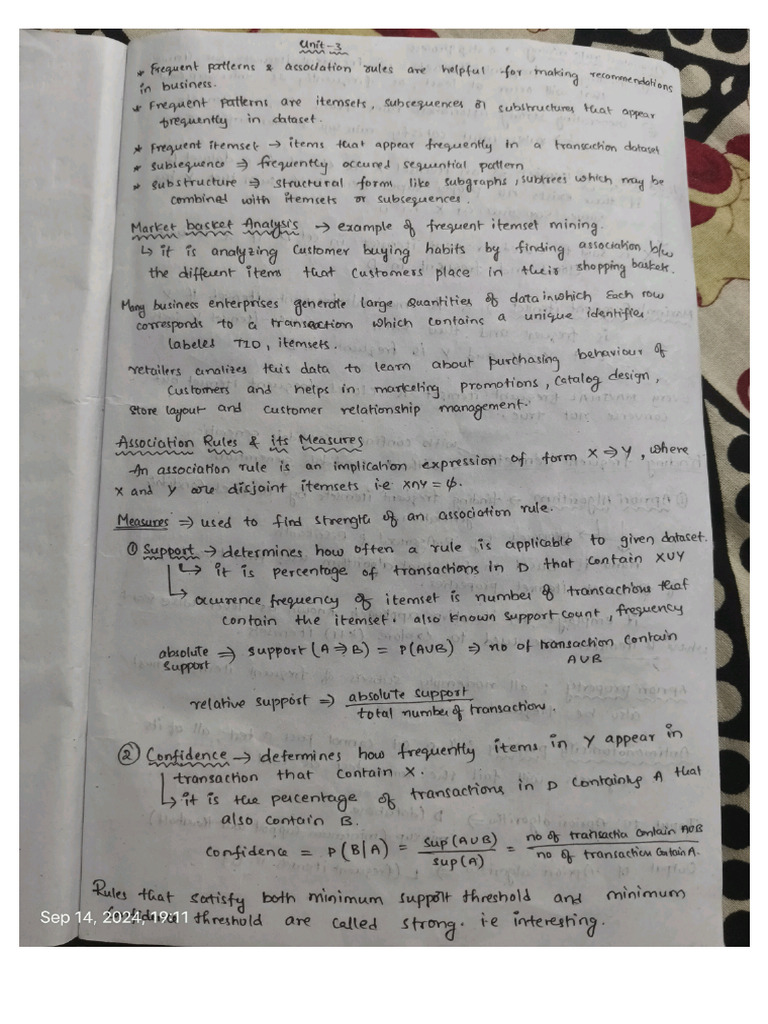 Unit-3
* Frequent patterns & association rules are helpful for making recommendations
in business.
* Frequent Patterns are itemsets, subsequences or substructures that appear
frequently in dataset.
* Frequent itemset → items that appear frequently in a transaction dataset
* subsequence ⇒ frequently occured sequential pattern
* substructure ⇒ structural form like subgraphs, subtrees which may be
combined with itemsets or subsequences.
Market basket Analysis → example of frequent itemset mining.
↳ it is analyzing customer buying habits by finding association b/w
the different items that customers place in their shopping baskets.
Many business enterprises generate large quantities of data in which Each row
corresponds to a transaction which contains a unique identifier
labeled TID, itemsets.
retailers analizes this data to learn about purchasing behaviour of
customers and helps in marketing promotions, catalog design,
store layout and customer relationship management.
Association Rules & its Measures
An association rule is an implication expression of form X ⇒ Y, where
X and Y are disjoint itemsets i.e X∩Y = φ.
Measures ⇒ used to find strength of an association rule.
① Support → determines how often a rule is applicable to given dataset.
↳ it is percentage of transactions in D that contain XUY
↳ occurence frequency of itemset is number of transactions that
contain the itemset. also known support count, frequency
absolute support ⇒ support (A ⇒ B) = P(AUB) ⇒ no of transaction contain AUB
relative support ⇒ absolute support / total number of transaction.
② Confidence → determines how frequently items in Y appear in
transaction that contain X.
↳ it is the percentage of transactions in D containing A that
also contain B.
Confidence = P(B|A) = sup(AUB) / sup(A) = no of transactio contain AUB / no of transaction contain A.
Rules that satisfy both minimum support threshold and minimum
confidence threshold are called strong. i.e interesting.
Sep 14, 2024, 19:11